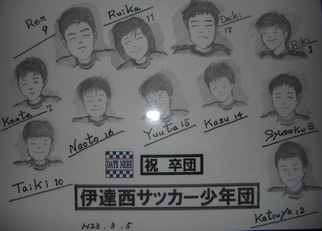 Ren 9
Ruika 11
Daiki 13
Riki 1
Kenta 7
Naoto 16
Yuuta 15
Kazu 14
Syusaku 8
Taiki 10
Katsuya 12
DATE NISHI
祝 卒団
伊達西サッカー少年団
H23.3.5